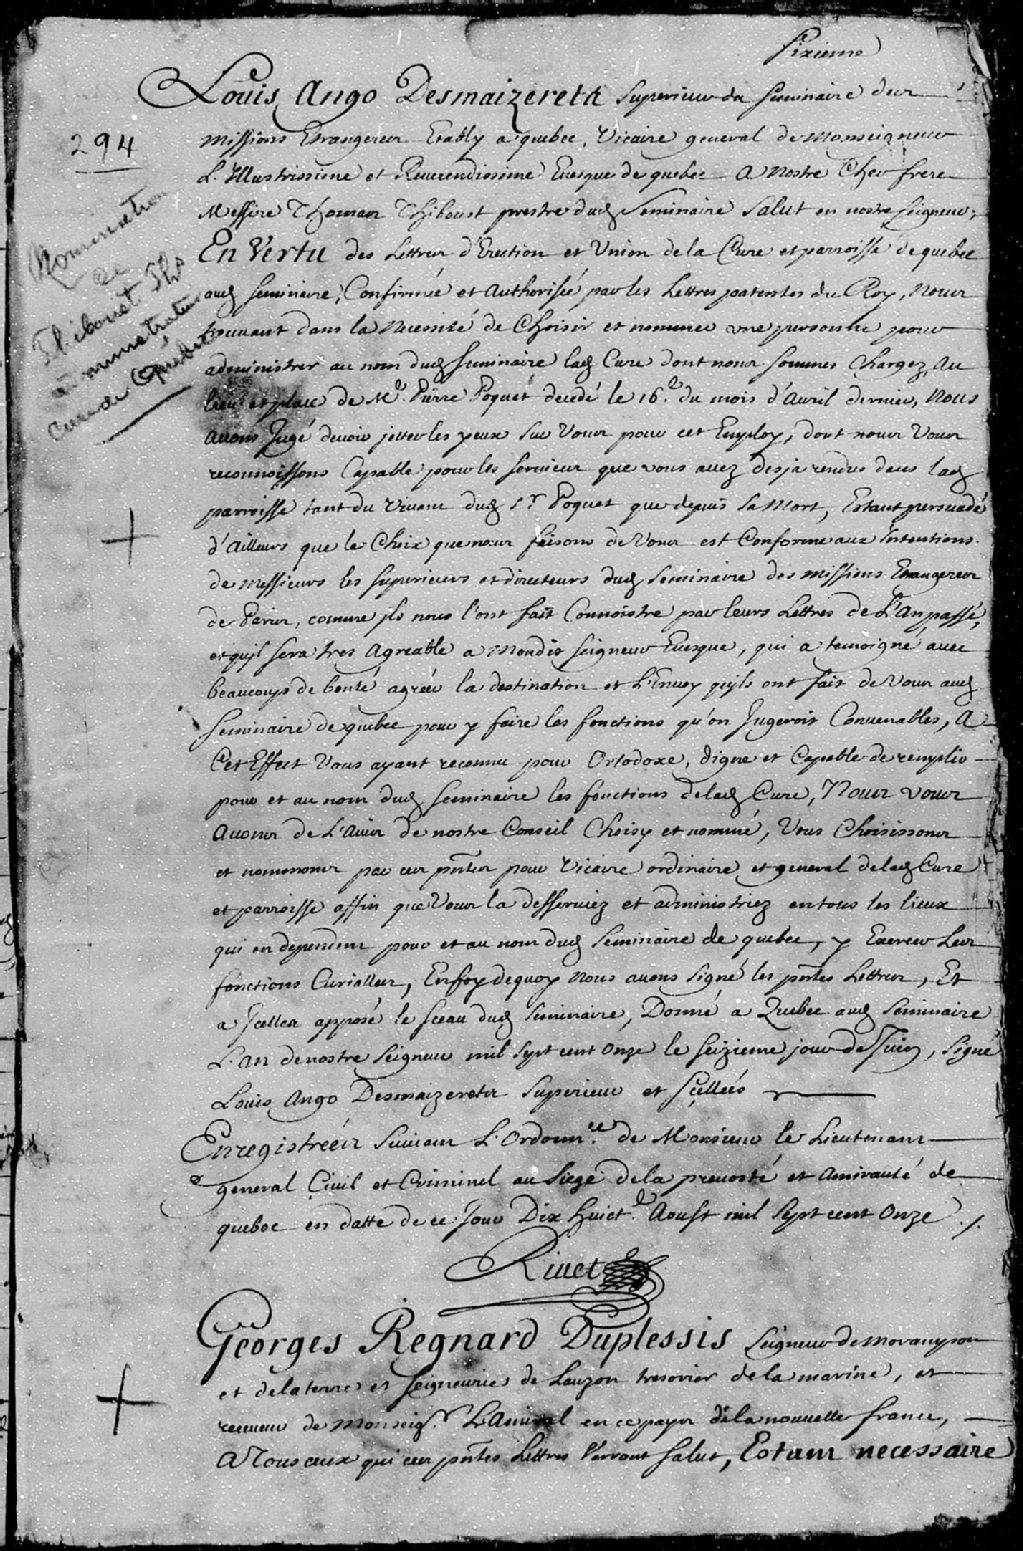 Sixieme
Louis Ango Desmaizerets Superieur du Seminaire des
missions Etrangeres Etably a quebec, Vicaire general de Monseigneur
L'Illustrissime et Reverendissime Evesque de quebec A Nostre Cher frere
Messire Thomas Thiboust prestre dud Seminaire Salut en nostre Seigneur,
En Vertu des Lettres d'Erection et Union de la Cure et parroisse de quebec
aud Seminaire, Confirmée et Authorisée par les Lettres patentes du Roy, Nous
trouvant dans la Necessité de Choisir et nommer une personne pour
administrer au nom dud Seminaire lad Cure dont nous sommes Chargez, Au
lieu et place de Mr. Pierre Poquet decedé le 16e. du mois d'Avril dernier, Nous
Avons Jugé devoir jetter les yeux sur Vous pour cet Employ, dont nous Vous
reconnoissons Capable pour les services que vous avez desja rendus dans lad
parroisse tant du Vivant dud Sr Poquet que depuis sa Mort, Estant persuadé
d'Ailleurs que le Choix que nous faisons de Vous est Conforme aux Intentions
de Messieurs les Superieurs et directeurs dud Seminaire des Missions Etrangeres
de Paris, comme ils nous l'ont fait Connoistre par leurs Lettres de L'an passé,
et qu'il sera tres Agreable a Mondit Seigneur Evesque, qui a temoigné avec
beaucoup de bonté agréer la destination et L'Envoy qu'ils ont fait de Vous aud
Seminaire de quebec pour y faire les fonctions qu'on Jugeroit Convenables, A
Cet Effect Vous ayant reconnu pour Ortodoxe, digne et Capable de remplir
pour et au nom dud Seminaire les fonctions de lad Cure, Nous vous
Avons de L'Avis de nostre Conseil Choisy et nommé, Vous Choisissons
et nommons par ces pntes pour Vicaire ordinaire et general de lad Cure
et parroisse affin que Vous la desserviez et administriez en tous les lieux
qui en dependent pour et au nom dud Seminaire de quebec, y Exercer Les
fonctions Curialles, En foy de quoy Nous avons signé les pntes Lettres, Et
a Jcelles apposé le sceau dud Seminaire, Donné a Quebec aud Seminaire
L'an de nostre Seigneur mil sept cent Onze le seizieme jour de Juin, signé
Louis Ango Desmaizerets Superieur et scellées
Enregistrées Suivant L'Ordonnce. de Monsieur le Lieutenant
general Civil et Criminel au Siege de la prevosté et Amirauté de
quebec en datte de ce Jour Dix huicte. Aoust mil sept cent Onze ./.
Rivet
Georges Regnard Duplessis Seigneur de Morampont
et de la terre et Seigneurie de Lauzon tresorier de la marine, et
receveur de Monseigr. L'Amiral en ce pays de la nouvelle france,
A Tous ceux qui ces pntes Lettres Verront Salut, Estant necessaire
294
Nomination
de
Thiboust Ptre
administrateur
Cure de Quebec